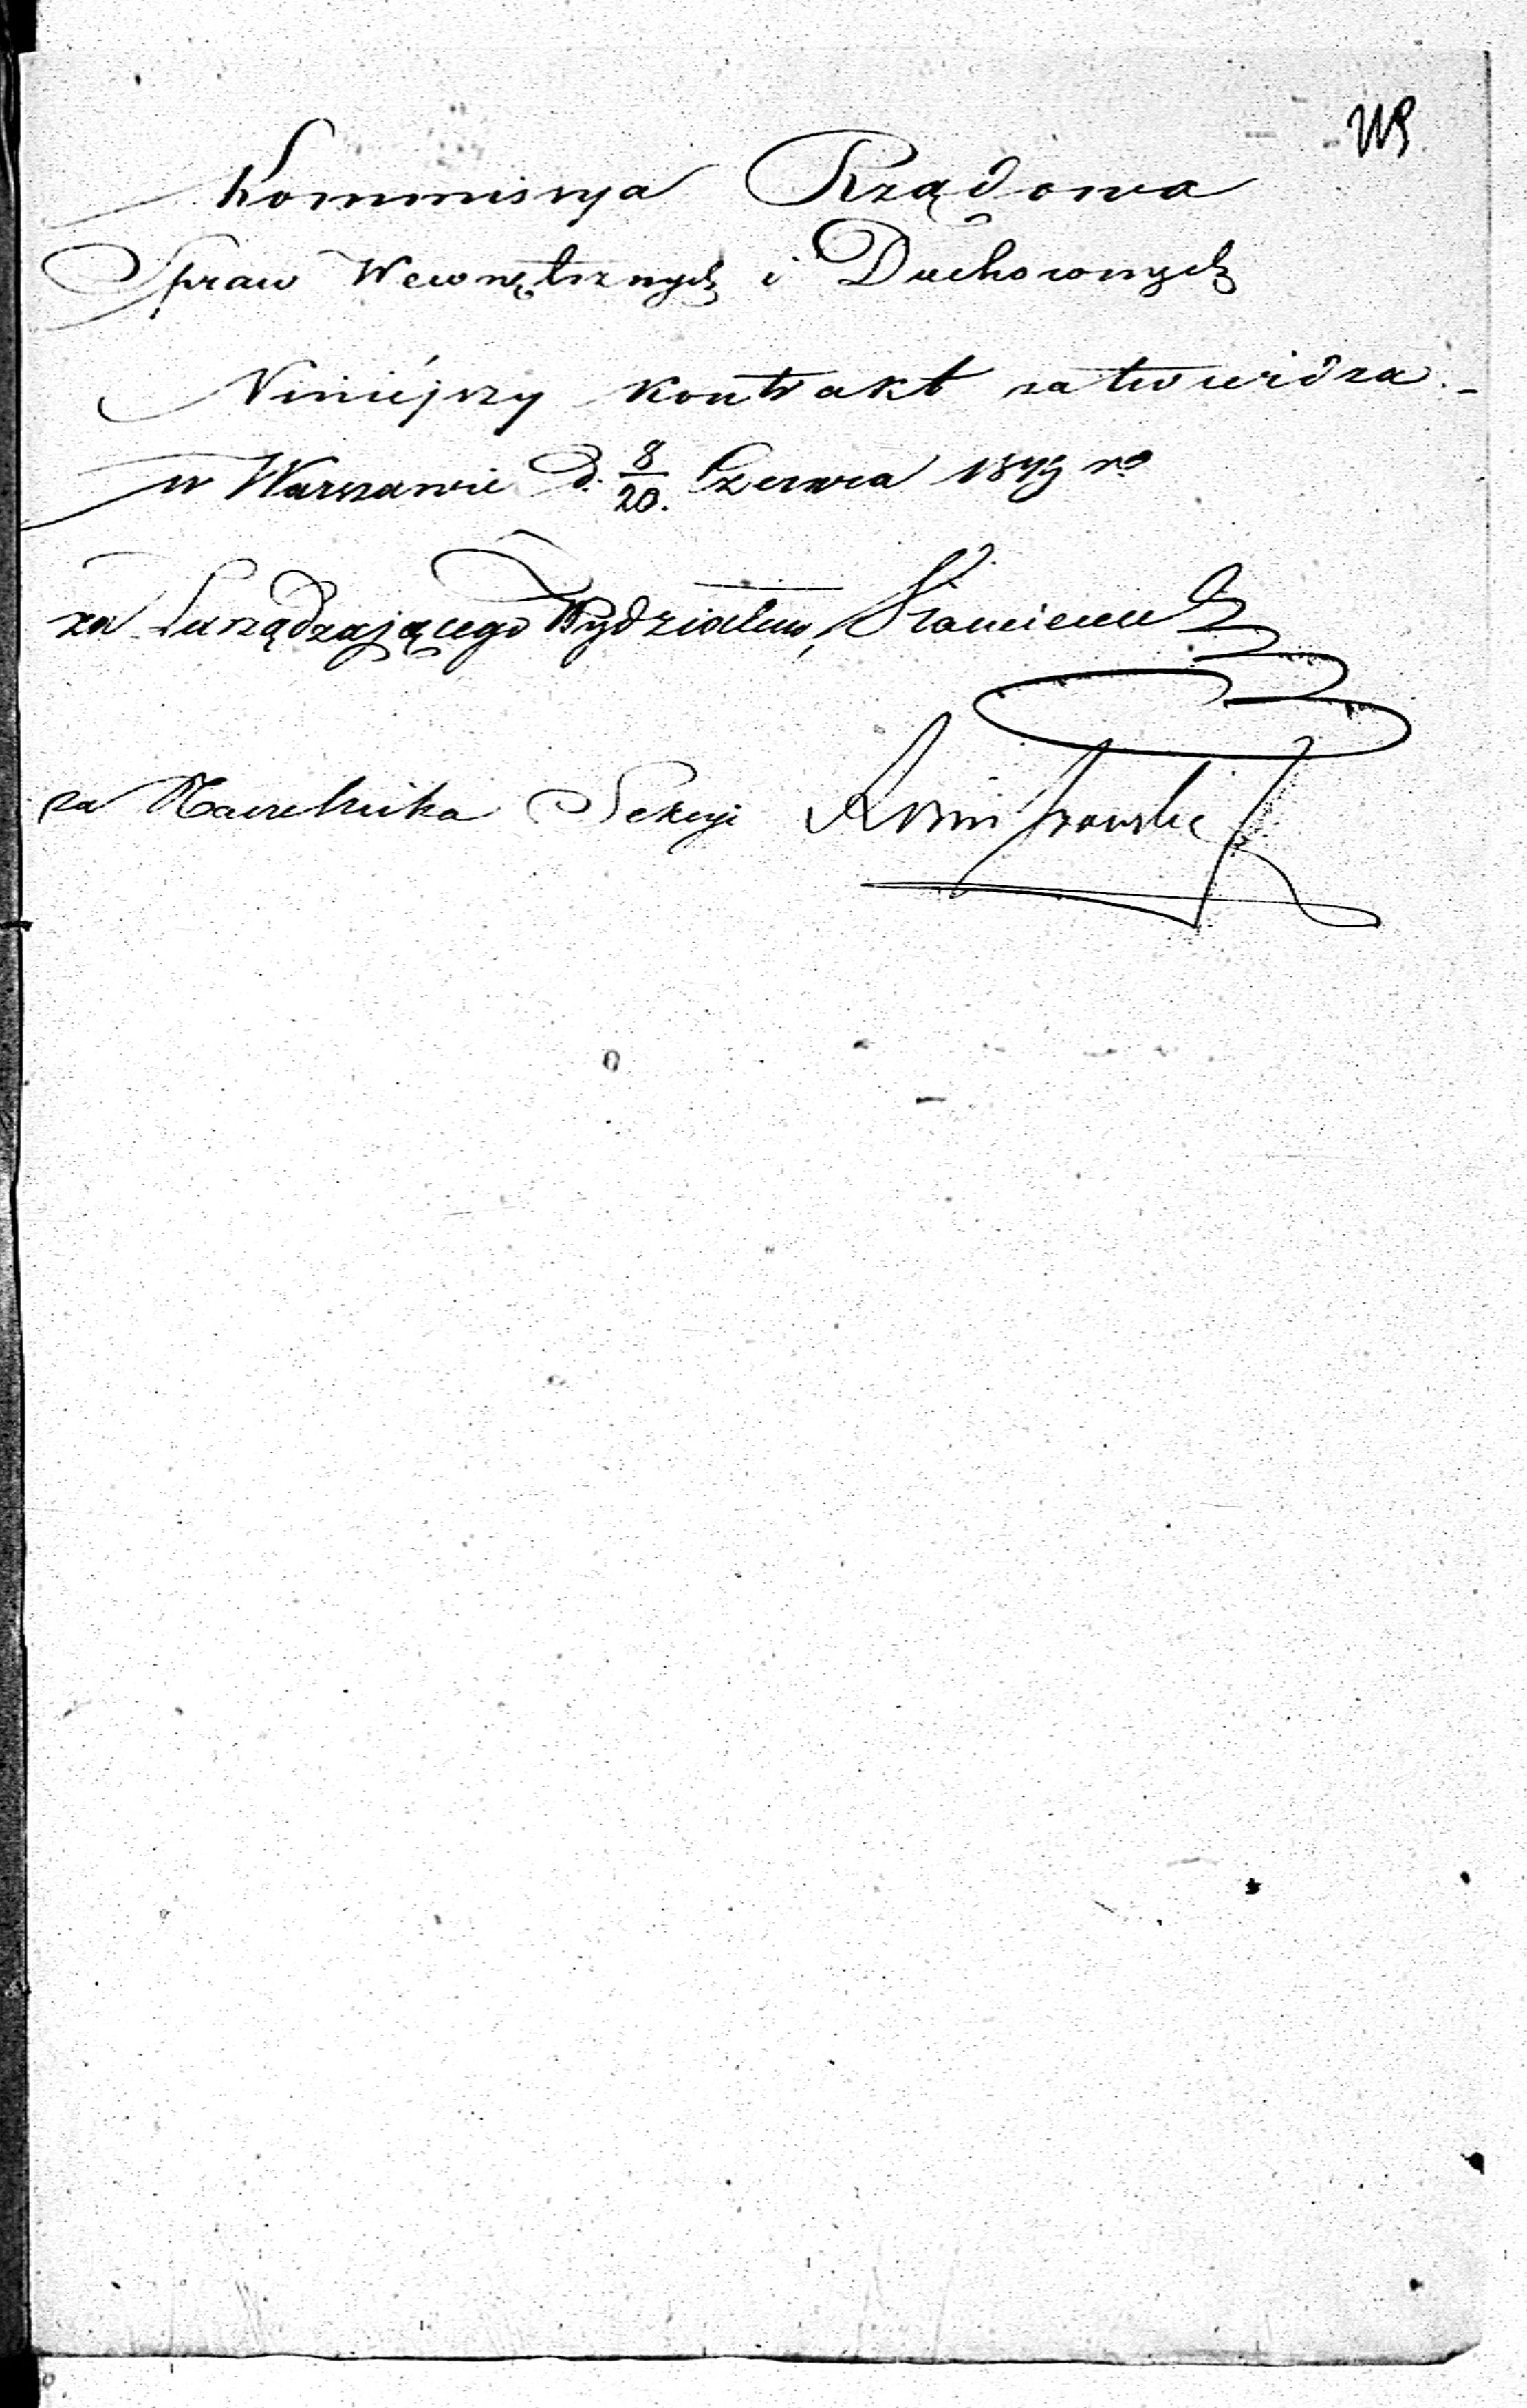 Kommissya Rządowa
Spraw Wewnętrznych i Duchownych
Niniéjszy kontrakt zatwierdza.
w Warszawie d. 8/20. Czerwca 1849 ro
za Zarządzającego Wydziałem,
za Naczelnika Sekcyi